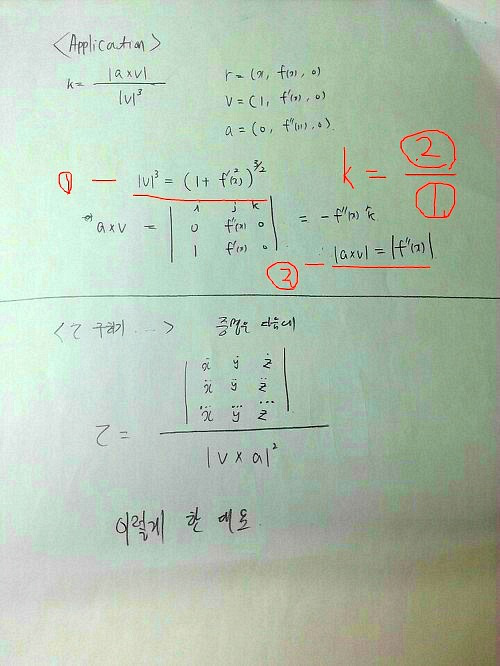 <Application>
k = |a×v| / |v|³
r = (x, f(x), 0)
v = (1, f'(x), 0)
a = (0, f''(x), 0)
① — |v|³ = (1 + f'(x)²)^3/2
k = ② / ①
a×v = | i j k |
| 0 f''(x) 0 |
| 1 f'(x) 0 |
= -f''(x) k
② — |a×v| = |f''(x)|
<τ 구하기 ...> 증명은 다음에
| ẋ ẏ ż |
| ẍ ÿ z̈ |
| x⃛ y⃛ z⃛ |
τ = / |v × a|²
이렇게 한 예도